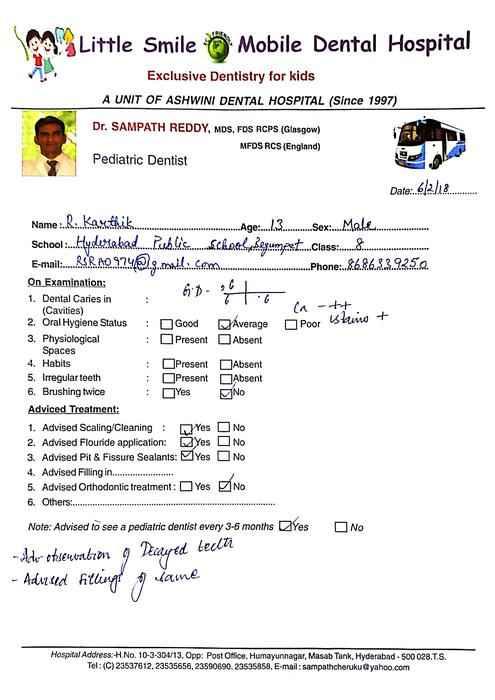 Little Smile Mobile Dental Hospital
Exclusive Dentistry for kids
A UNIT OF ASHWINI DENTAL HOSPITAL (Since 1997)
Dr. SAMPATH REDDY, MDS, FDS RCPS (Glasgow)
MFDS RCS (England)
Pediatric Dentist
Date: 6/2/18
Name: R. Karthik Age: 13 Sex: Male
School: Hyderabad Public School, Begumpet Class: 8
E-mail: RSRAO974@gmail.com Phone: 8686339250
On Examination:
1. Dental Caries in (Cavities) :
6 6 6
Ca - ++
stains +
2. Oral Hygiene Status : Good Average Poor
3. Physiological Spaces : Present Absent
4. Habits : Present Absent
5. Irregular teeth : Present Absent
6. Brushing twice : Yes No
Adviced Treatment:
1. Advised Scaling/Cleaning : Yes No
2. Advised Flouride application: Yes No
3. Advised Pit & Fissure Sealants: Yes No
4. Advised Filling in
5. Advised Orthodontic treatment: Yes No
6. Others:
Note: Advised to see a pediatric dentist every 3-6 months Yes No
- Adv observation of Decayed teeth
- Advised Fillings of same
Hospital Address:-H.No. 10-3-304/13, Opp: Post Office, Humayunnagar, Masab Tank, Hyderabad - 500 028.T.S.
Tel: (C) 23537612, 23535656, 23590690, 23535858, E-mail: sampathcheruku@yahoo.com